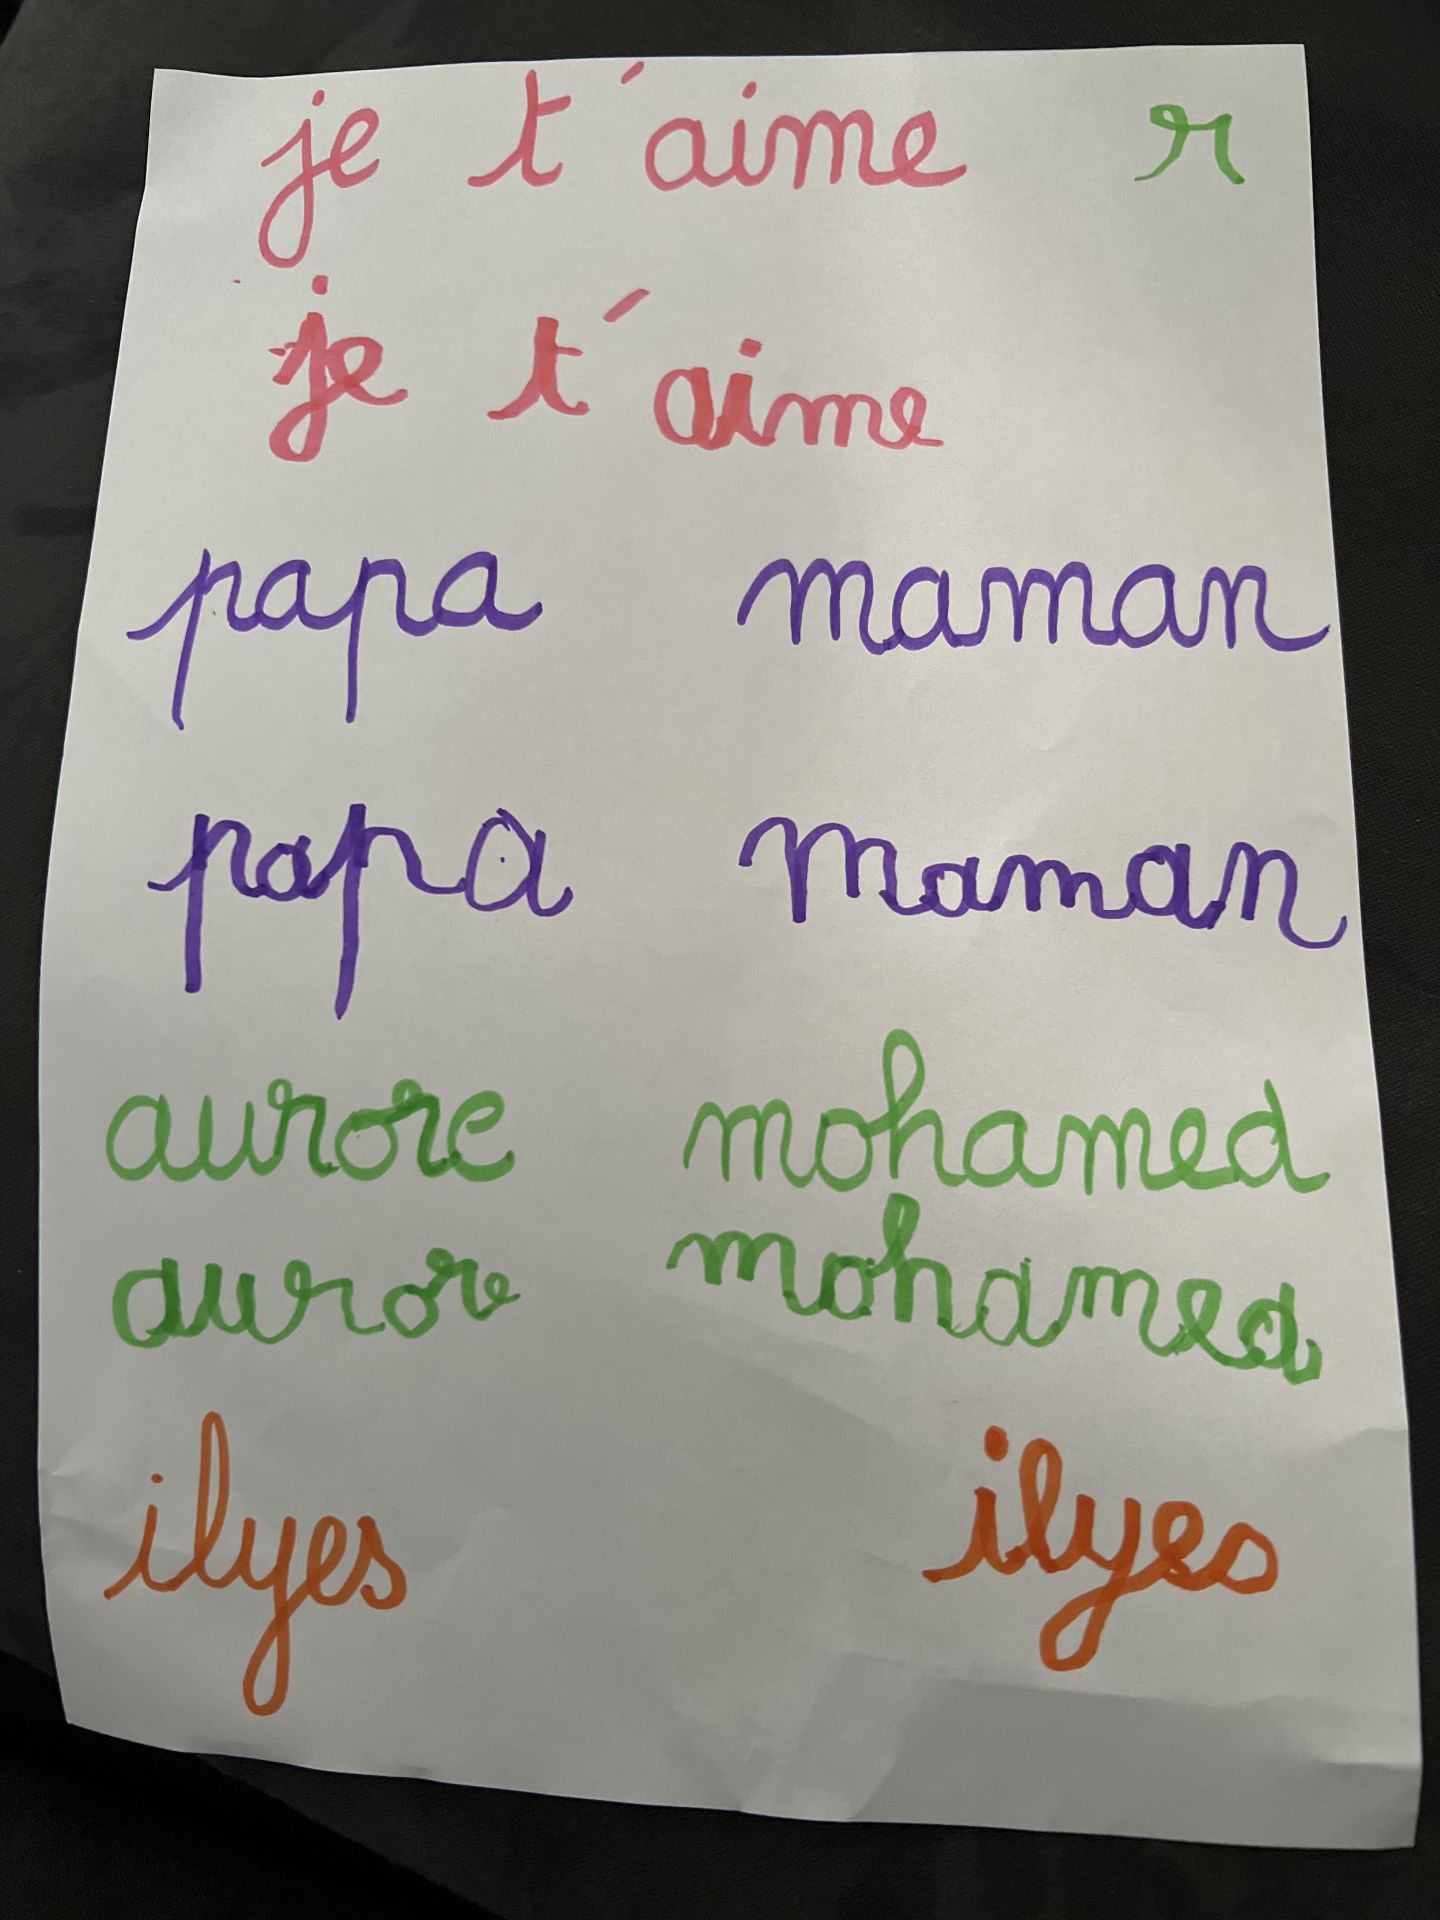 je t'aime r
je t'aime
papa maman
papa maman
aurore mohamed
aurore mohamed
ilyes ilyes